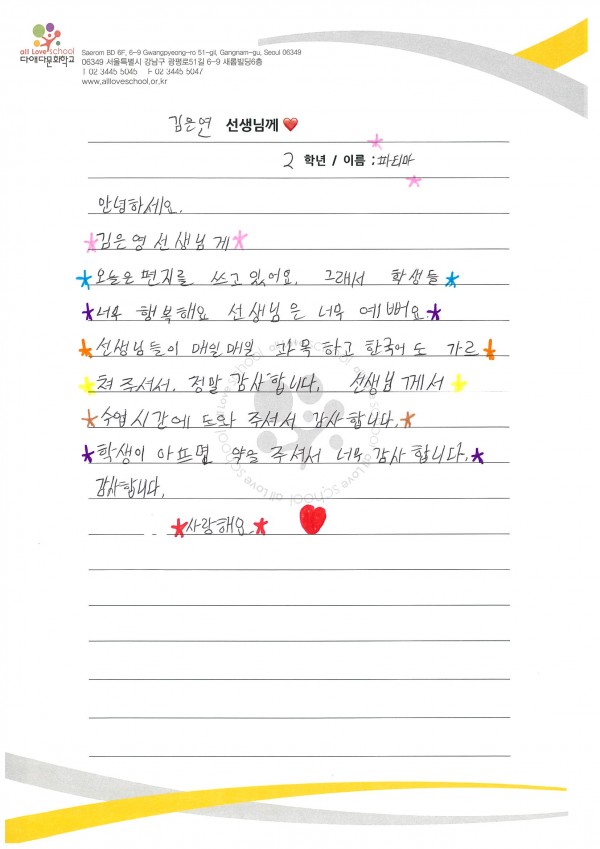 all Love school
다애다문화학교
Saerom BD 6F, 6-9 Gwangpyeong-ro 51-gil, Gangnam-gu, Seoul 06349
06349 서울특별시 강남구 광평로51길 6-9 새롬빌딩6층
T 02 3445 5045 F 02 3445 5047
www.allloveschool.or.kr
김은연 선생님께
2 학년 / 이름 : 파티마
안녕하세요.
김은영 선생님 게
오늘은 편지를 쓰고 있어요. 그래서 학생들
너무 행복해요 선생님은 너무 예뻐요.
선생님들이 매일매일 과목 하고 한국어 도 가르
쳐 주셔서. 정말 감사합니다. 선생님 께서
수업 시간에 도와 주셔서 감사합니다.
학생이 아프면 약을 주셔서 너무 감사합니다.
감사합니다.
사랑해요
all Love school all Love school